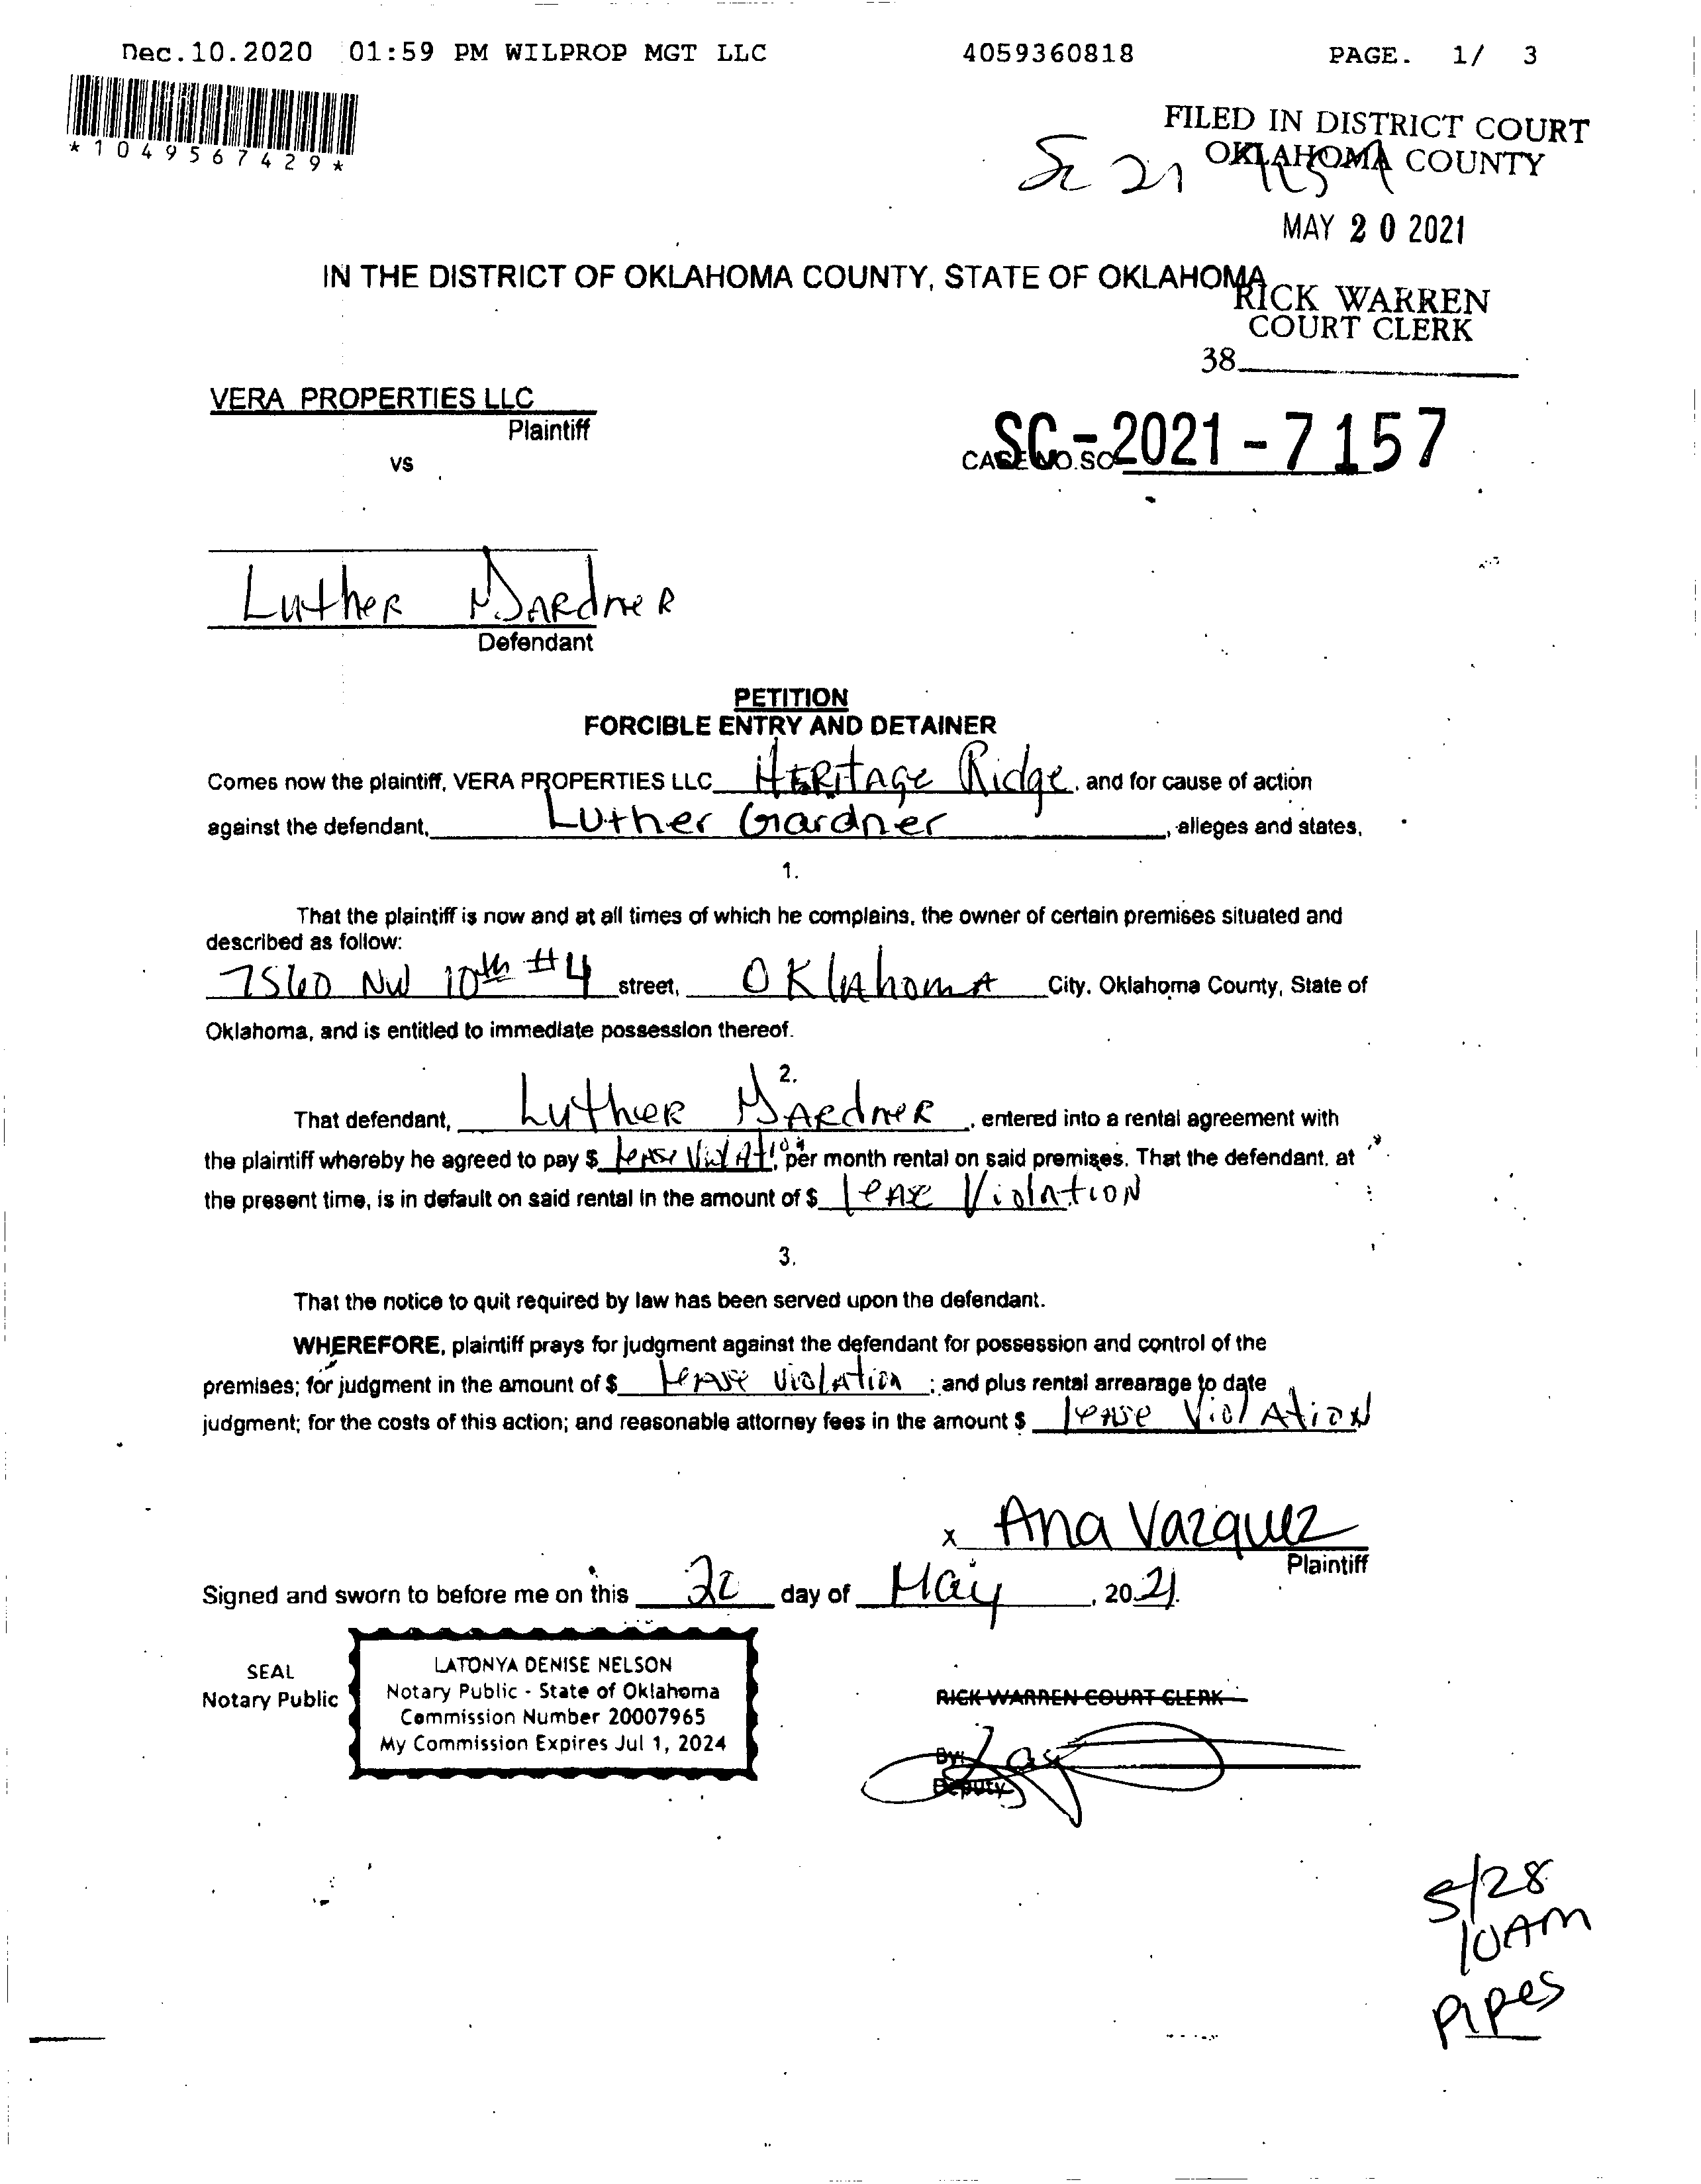 Dec.10.2020 01:59 PM WILPROP MGT LLC 4059360818 PAGE. 1/ 3
*1049567429*
FILED IN DISTRICT COURT
OKLAHOMA COUNTY
SC 21
MAY 20 2021
IN THE DISTRICT OF OKLAHOMA COUNTY, STATE OF OKLAHOMA
RICK WARREN
COURT CLERK
38
VERA PROPERTIES LLC
Plaintiff
SC-2021-7157
CASE NO. SC
VS
Luther Gardner
Defendant
PETITION
FORCIBLE ENTRY AND DETAINER
Comes now the plaintiff, VERA PROPERTIES LLC Heritage Ridge, and for cause of action
against the defendant, Luther Gardner, alleges and states,
1.
That the plaintiff is now and at all times of which he complains, the owner of certain premises situated and
described as follow:
7560 NW 10th #4 street, Oklahoma City, Oklahoma County, State of
Oklahoma, and is entitled to immediate possession thereof.
2.
That defendant, Luther Gardner, entered into a rental agreement with
the plaintiff whereby he agreed to pay $ lease violation, per month rental on said premises. That the defendant, at
the present time, is in default on said rental in the amount of $ lease violation
3.
That the notice to quit required by law has been served upon the defendant.
WHEREFORE, plaintiff prays for judgment against the defendant for possession and control of the
premises; for judgment in the amount of $ lease violation ; and plus rental arrearage to date
judgment; for the costs of this action; and reasonable attorney fees in the amount $ lease violation
x Ana Vazquez
Plaintiff
Signed and sworn to before me on this 20 day of May, 2021.
SEAL
Notary Public
LATONYA DENISE NELSON
Notary Public - State of Oklahoma
Commission Number 20007965
My Commission Expires Jul 1, 2024
RICK WARREN COURT CLERK
By:
Deputy
5/28
10AM
Pipes